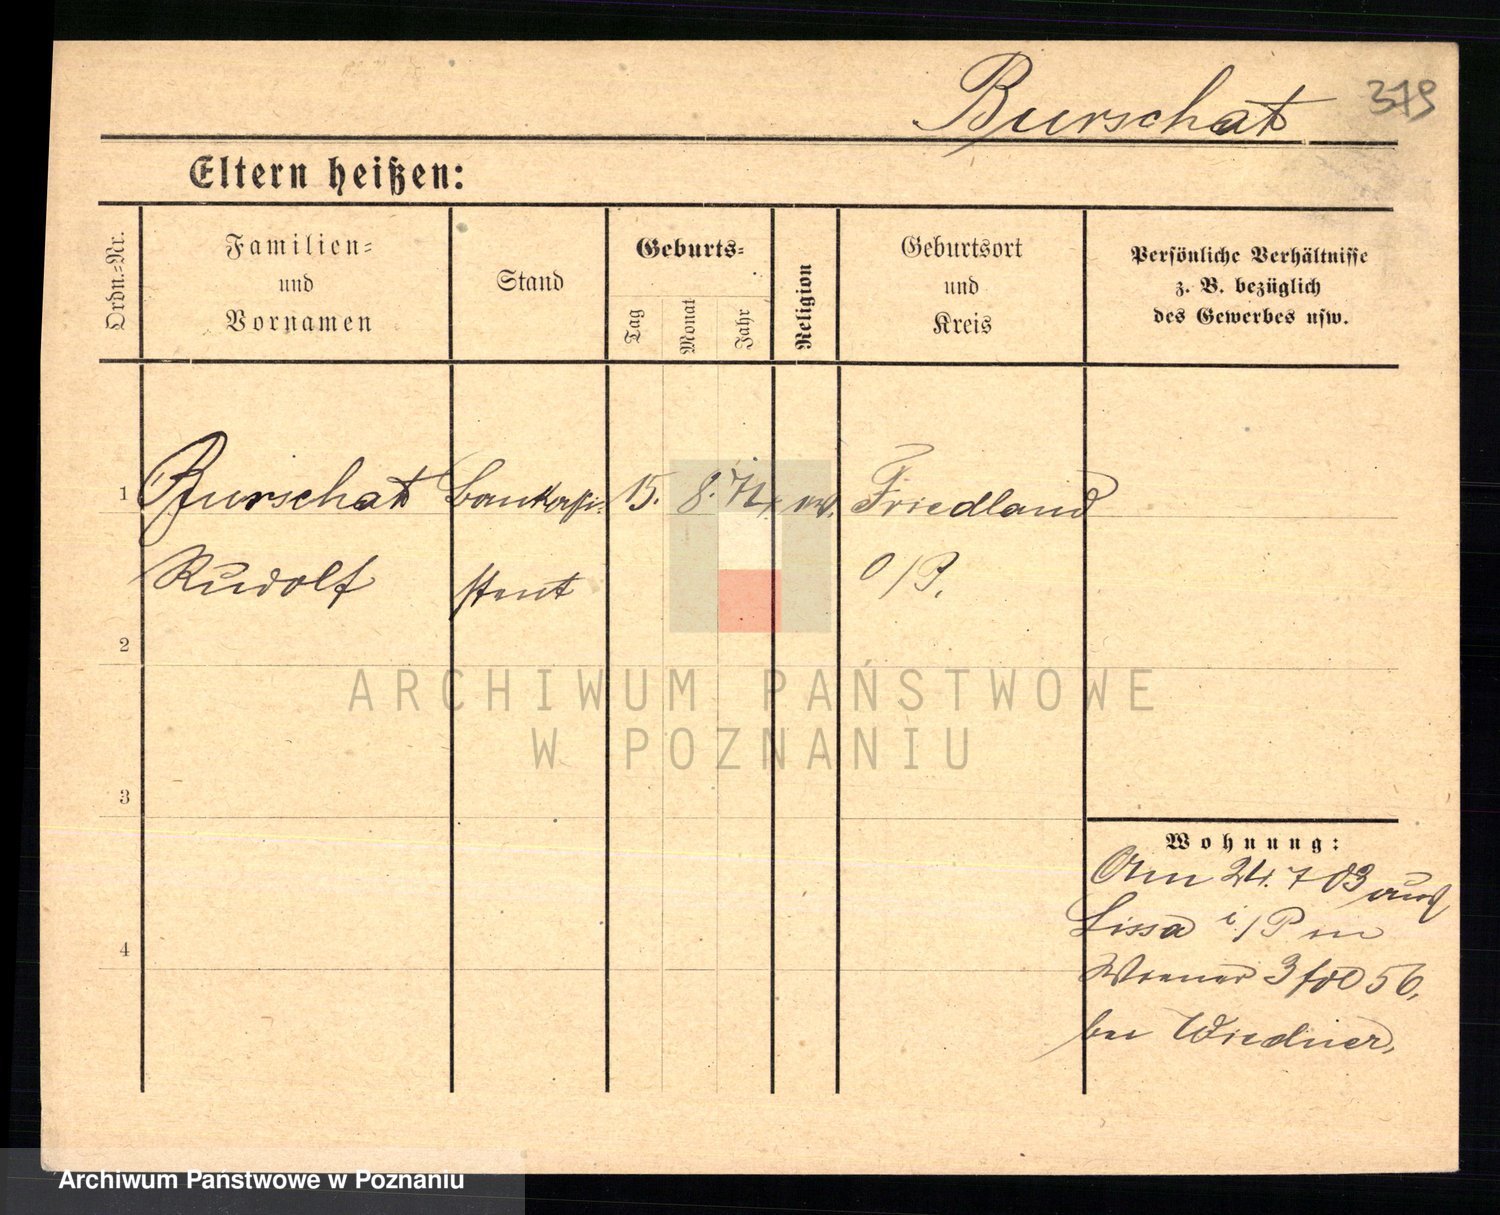 Burschat 379
Eltern heißen:
Ordn.-Nr.
Familien-
und
Vornamen
Stand
Geburts-
Tag
Monat
Jahr
Religion
Geburtsort
und
Kreis
Persönliche Verhältnisse
z. B. bezüglich
des Gewerbes usw.
1 Burschat 15. 8. Friedland
Rudolf stent O/P.
2
ARCHIWUM PAŃSTWOWE
W POZNANIU
3
Wohnung:
Am 24. 7 03 aus
Lissa i/P in
4
56,
bei Wiedner,
Archiwum Państwowe w Poznaniu